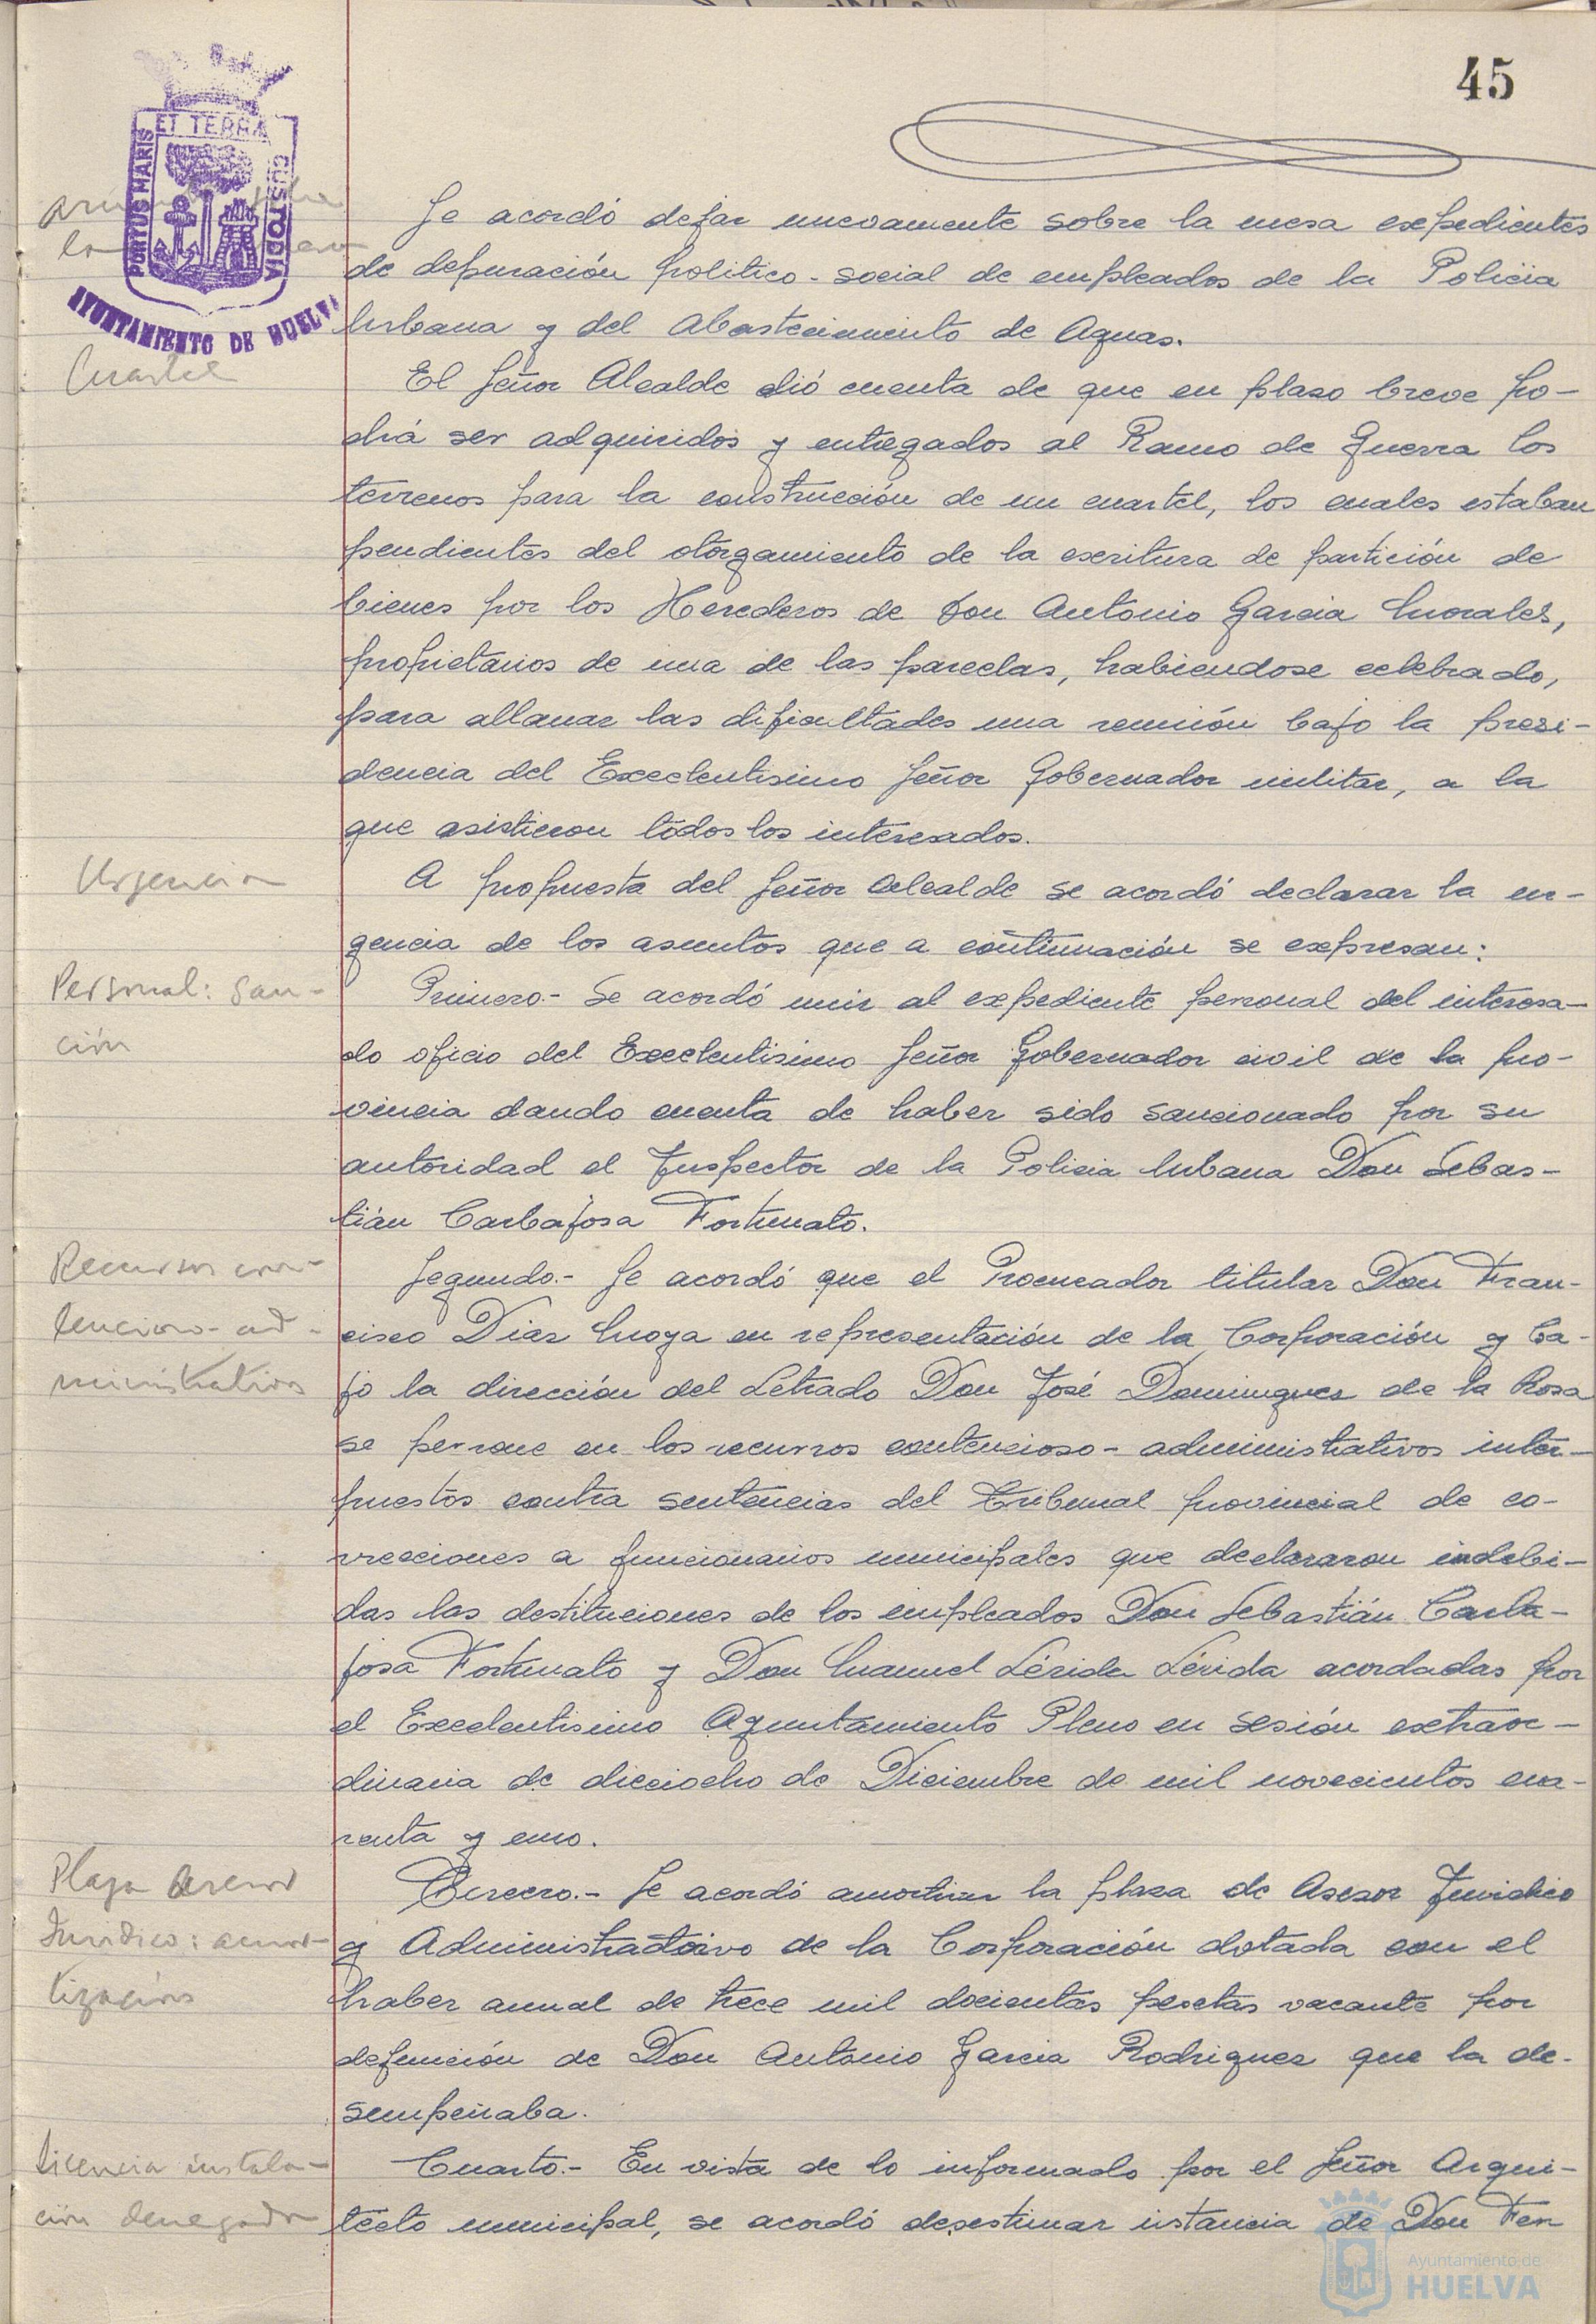 45
ET TERRA
PORTUS MARIS
CUSTODIA
AYUNTAMIENTO DE HUELVA
Se acordó dejar nuevamente sobre la mesa expedientes
de depuración politico-social de empleados de la Policia
Urbana y del Abastecimiento de Aguas.
Cuartel
El Señor Alcalde dió cuenta de que en plazo breve po-
drá ser adquiridos y entregados al Ramo de Guerra los
terrenos para la construcción de un cuartel, los cuales estaban
pendientes del otorgamiento de la escritura de partición de
bienes por los Herederos de Don Antonio Garcia Morales,
propietarios de una de las parcelas, habiendose celebrado,
para allanar las dificultades una reunión bajo la presi-
dencia del Excelentisimo Señor Gobernador militar, a la
que asistieron todos los interesados.
Urgencia
A propuesta del Señor Alcalde se acordó declarar la ur-
gencia de los asuntos que a continuación se expresan:
Personal: San-
ción
Primero.- Se acordó unir al expediente personal del interesa-
do oficio del Excelentisimo Señor Gobernador civil de la pro-
vincia dando cuenta de haber sido sancionado por su
autoridad el Inspector de la Policia Urbana Don Sebas-
tián Carbajosa Fortunato.
Recursos con-
tencioso-ad-
ministrativos
Segundo.- Se acordó que el Procurador titular Don Fran-
cisco Diaz Moya en representación de la Corporación y ba-
jo la dirección del Letrado Don José Dominguez de la Rosa
se persone en los recursos contencioso-administrativos inter-
puestos contra sentencias del Tribunal provincial de co-
rrecciones a funcionarios municipales que declararon indebi-
das las destituciones de los empleados Don Sebastián Carba-
josa Fortunato y Don Manuel Lérida Lérida acordadas por
el Excelentisimo Ayuntamiento Pleno en sesión extraor-
dinaria de dieciocho de Diciembre de mil novecientos cua-
renta y uno.
Plaza Asesor
Jurídico: amor-
tización
Tercero.- Se acordó amortizar la plaza de Asesor Juridico
y Administrativo de la Corporación dotada con el
haber anual de trece mil docientas pesetas vacante por
defunción de Don Antonio Garcia Rodriguez que la de-
sempeñaba.
Licencia instala-
ción denegada
Cuarto.- En vista de lo informado por el Señor Arqui-
tecto municipal, se acordó desestimar instancia de Don Fer
Ayuntamiento de
HUELVA